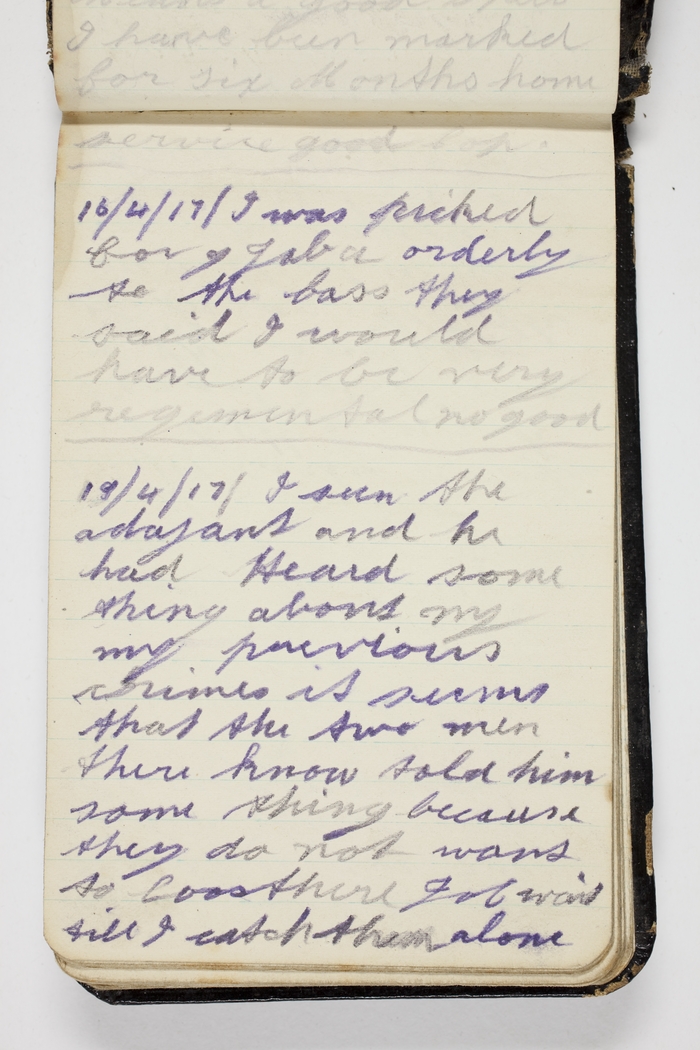 means a good
I have been marked
for six Months home
service good
16/4/17/ I was picked
for a Job a orderly
to the bass they
said I would
have to be very
regimental no good
19/4/17/ I seen the
adajant and he
had Heard some
thing about my
my previous
crimes it seems
that the two men
there know told him
some thing because
they do not want
to Loos there Job wait
till I catch them alone